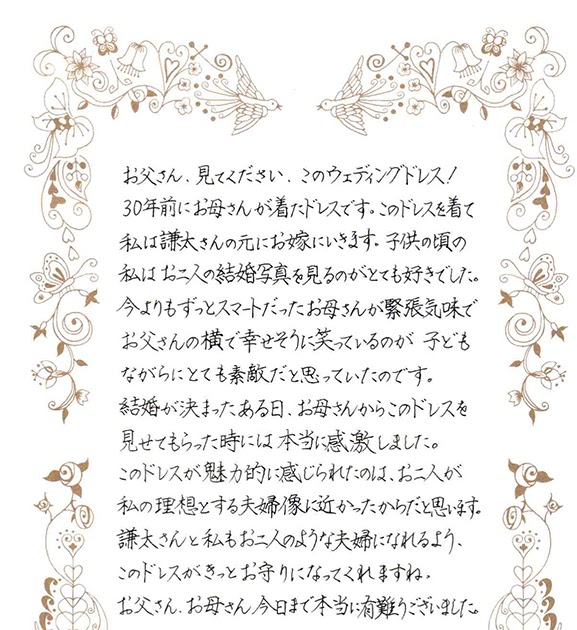 お父さん、見てください、このウェディングドレス！
30年前にお母さんが着たドレスです。このドレスを着て
私は謙太さんの元にお嫁にいきます。子供の頃の
私はお二人の結婚写真を見るのがとても好きでした。
今よりもずっとスマートだったお母さんが緊張気味で
お父さんの横で幸せそうに笑っているのが 子ども
ながらにとても素敵だと思っていたのです。
結婚が決まったある日、お母さんからこのドレスを
見せてもらった時には本当に感激しました。
このドレスが魅力的に感じられたのは、お二人が
私の理想とする夫婦像に近かったからだと思います。
謙太さんと私もお二人のような夫婦になれるよう、
このドレスがきっとお守りになってくれますね。
お父さん、お母さん、今日まで本当に有難うございました。